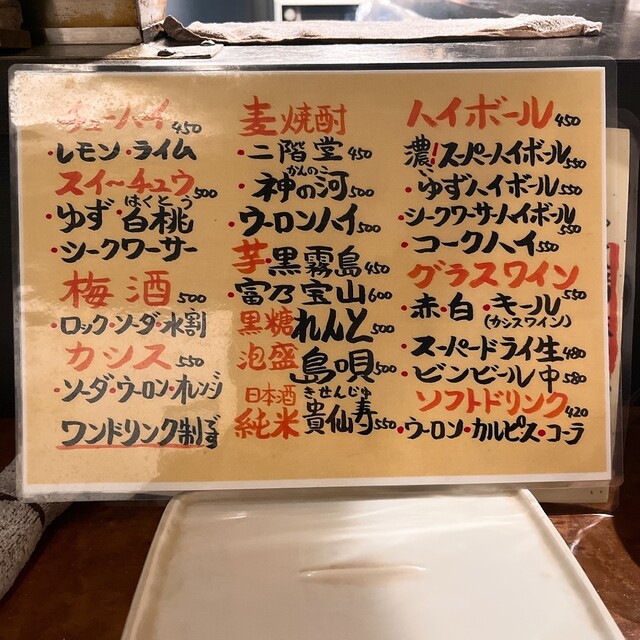 チューハイ 450
・レモン・ライム
スイ～チュウ 500
はくとう
・ゆず・白桃
・シークワーサー
梅酒 500
・ロック・ソーダ・水割
カシス 550
・ソーダ・ウーロン・オレンジ
ワンドリンク制です
麦焼酎
・二階堂 450
かんのこ
・神の河 500
・ウーロンハイ 500
芋・黒霧島 450
・富乃宝山 600
黒糖 れんと 500
泡盛 島唄 500
日本酒 きせんじゅ
純米 貴仙寿 550
ハイボール 450
濃!スーパーハイボール 550
・ゆずハイボール 550
・シークワーサーハイボール 550
・コークハイ 550
グラスワイン 550
・赤・白・キール
(カシスワイン)
・スーパードライ生 480
・ビンビール中 580
ソフトドリンク 420
・ウーロン・カルピス・コーラ